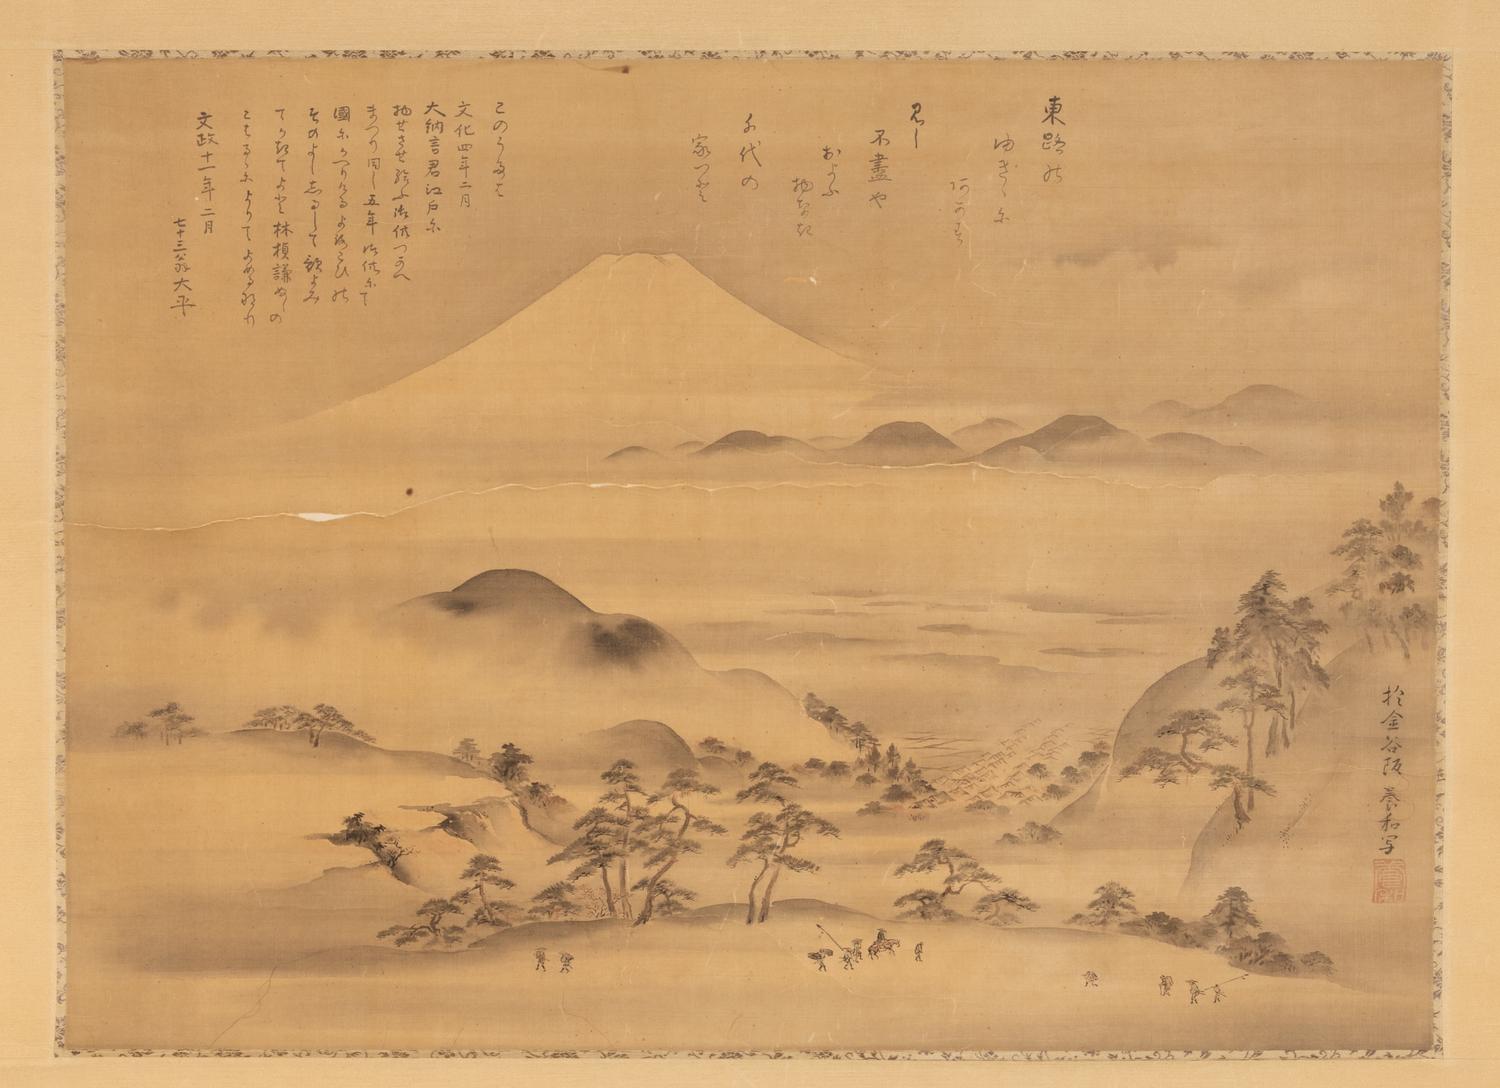 東路の
ゆきゝに
見し
不盡や
およふ
千代の
家つと
このうたは
文化四年二月
大納言君江戸に
物せさせ給ふ御供つかへ
まつり同し五年御供にて
國にかへりける よろこひの
そのよししるして 歌よみ
てかきてよと 林楨謙ぬしの
こはるゝによりてよめるなり
文政十一年二月
七十三翁大平
於金谷阪養和写